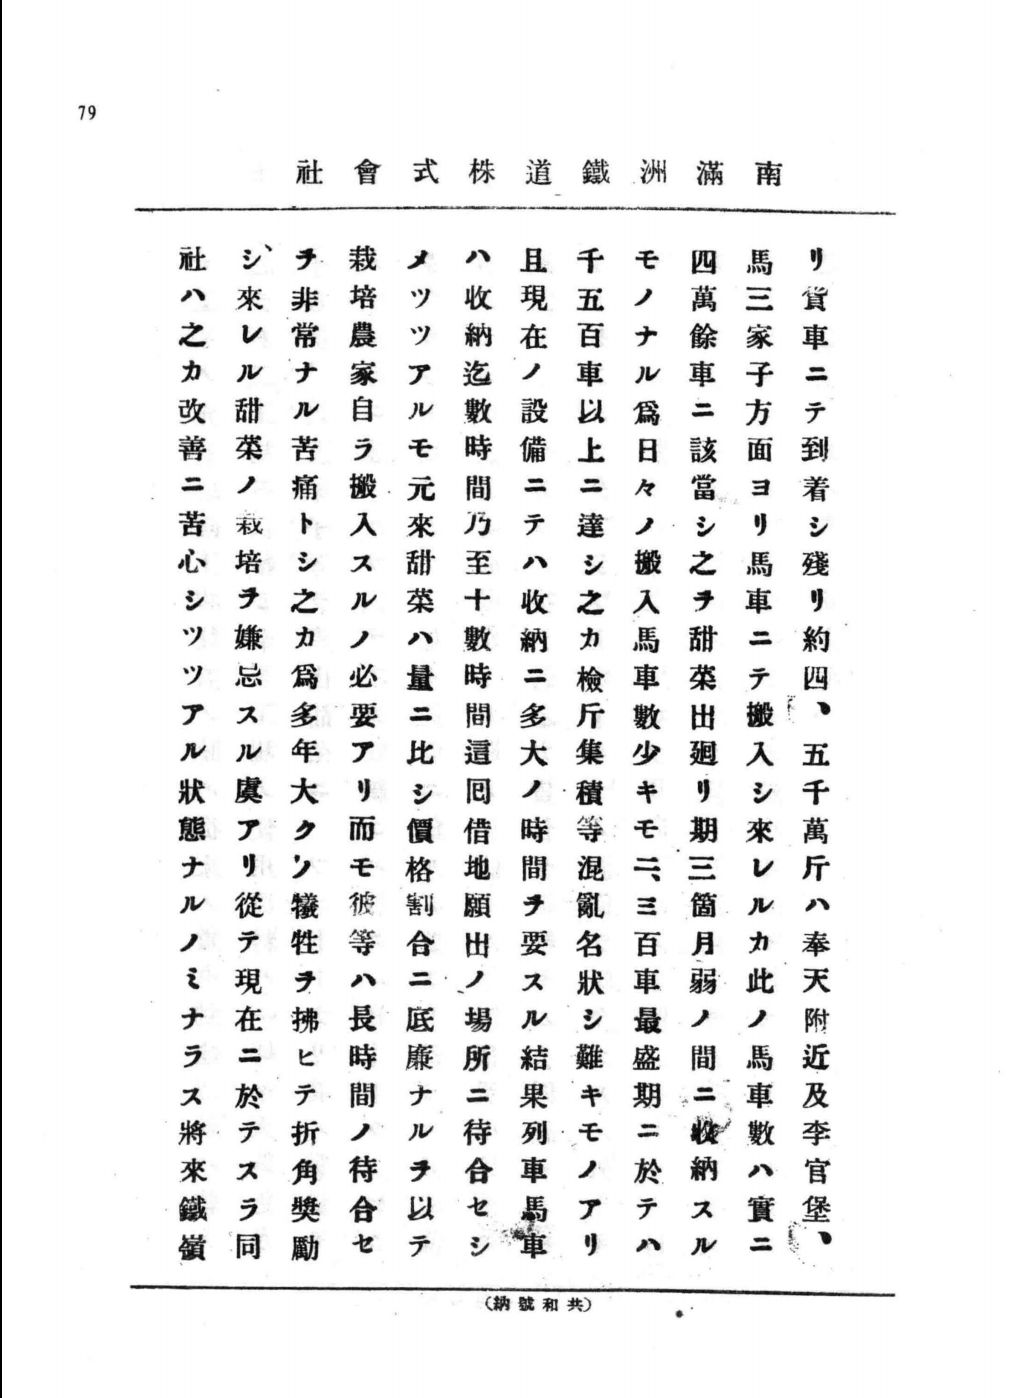 79
南滿洲鐵道株式會社
リ貨車ニテ到着シ殘リ約四、五千萬斤ハ奉天附近及李官堡、
馬三家子方面ヨリ馬車ニテ搬入シ來レルカ此ノ馬車數ハ實ニ
四萬餘車ニ該當シ之ヲ甜菜出廻リ期三箇月弱ノ間ニ收納スル
モノナル爲日々ノ搬入馬車數少キモ二、三百車最盛期ニ於テハ
千五百車以上ニ達シ之カ檢斤集積等混亂名狀シ難キモノアリ
且現在ノ設備ニテハ收納ニ多大ノ時間ヲ要スル結果列車馬車
ハ收納迄數時間乃至十數時間這囘借地願出ノ場所ニ待合セシ
メツツアルモ元來甜菜ハ量ニ比シ價格割合ニ底廉ナルヲ以テ
栽培農家自ラ搬入スルノ必要アリ而モ彼等ハ長時間ノ待合セ
ヲ非常ナル苦痛トシ之カ爲多年大クノ犧牲ヲ拂ヒテ折角奬勵
シ、來レル甜菜ノ栽培ヲ嫌忌スル虞アリ從テ現在ニ於テスラ同
社ハ之カ改善ニ苦心シツツアル狀態ナルノミナラス將來鐵嶺
(共和號納)